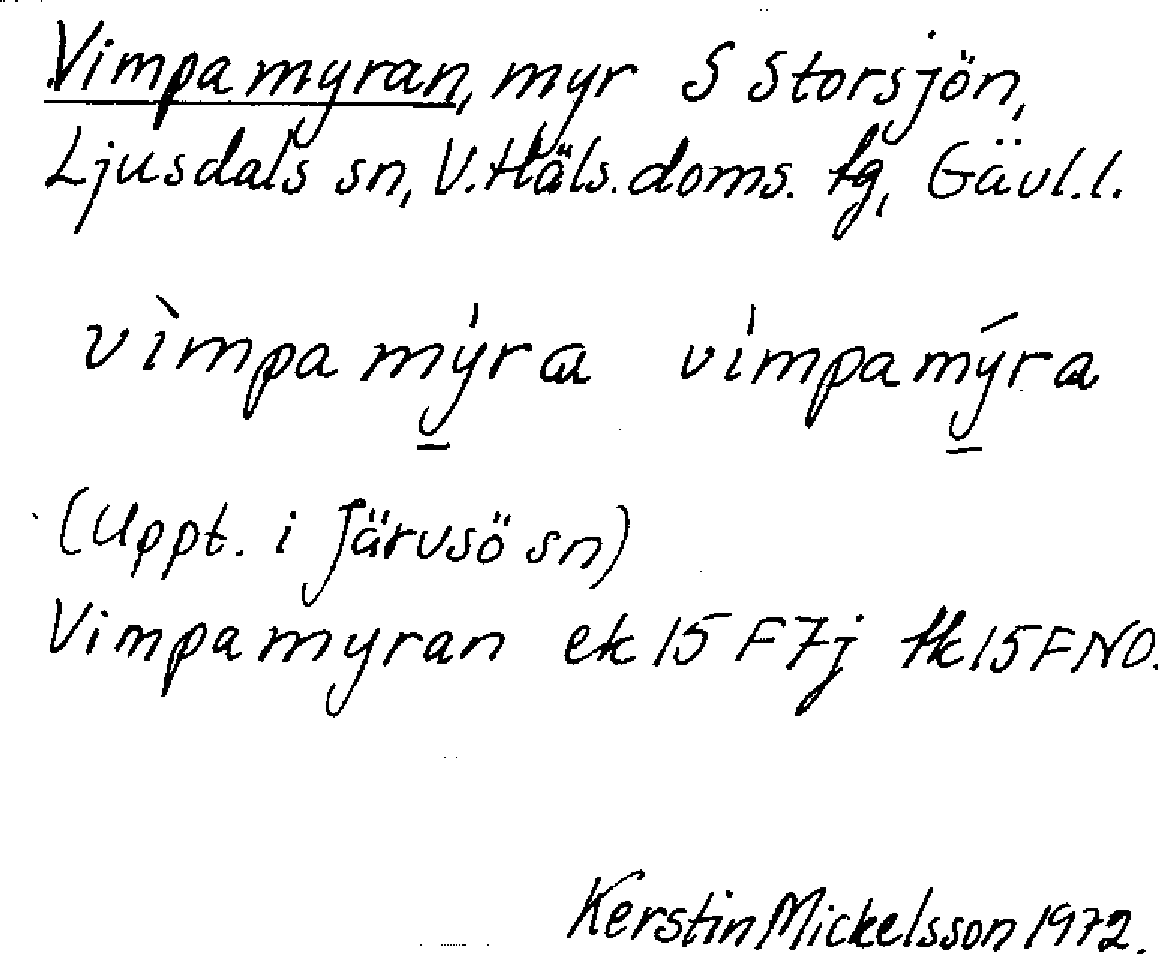 Vimpamyran, myr S Storsjön,
Ljusdals sn, V.Häls.doms. tg, Gävl.l.
vìmpa mýra vímpamýra
(Uppt. i Järvsö sn)
Vimpamyran ek 15 F7j tk 15 FNO.
Kerstin Mickelsson 1972.